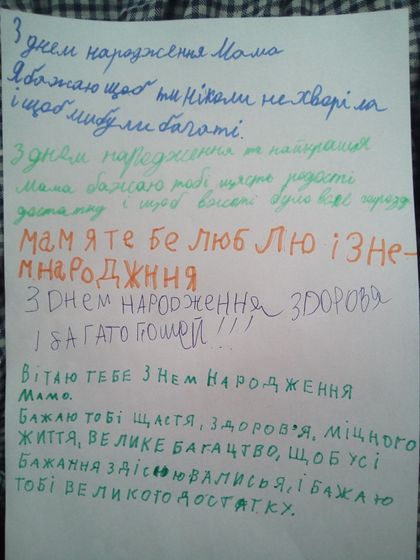 З днем народження Мама
Я бажаю щоб ти ніколи не хворіла
і щоб ми були багаті.
З днем народження ти найкраща
мама бажаю тобі щастя радості
достатку і щоб в житті було все гаразд
МАМ Я ТЕ БЕ ЛЮБ ЛЮ І ЗНЕ-
МНАРОДЖННЯ
З ДНЕМ НАРОДЖЕННЯ ЗДОРОВЯ
І БАГАТО ГОШЕЙ!!!
ВІТАЮ ТЕБЕ З НЕМ НАРОДЖЕННЯ
МАМО.
БАЖАЮ ТОБІ ЩАСТЯ, ЗДОРОВ'Я, МІЦНОГО
ЖИТТЯ, ВЕЛИКЕ БАГАЦТВО, ЩОБ УСІ
БАЖАННЯ ЗДІСНЮВАЛИСЬЯ, І БАЖАЮ
ТОБІ ВЕЛИКОГО ДОСТАТКУ.